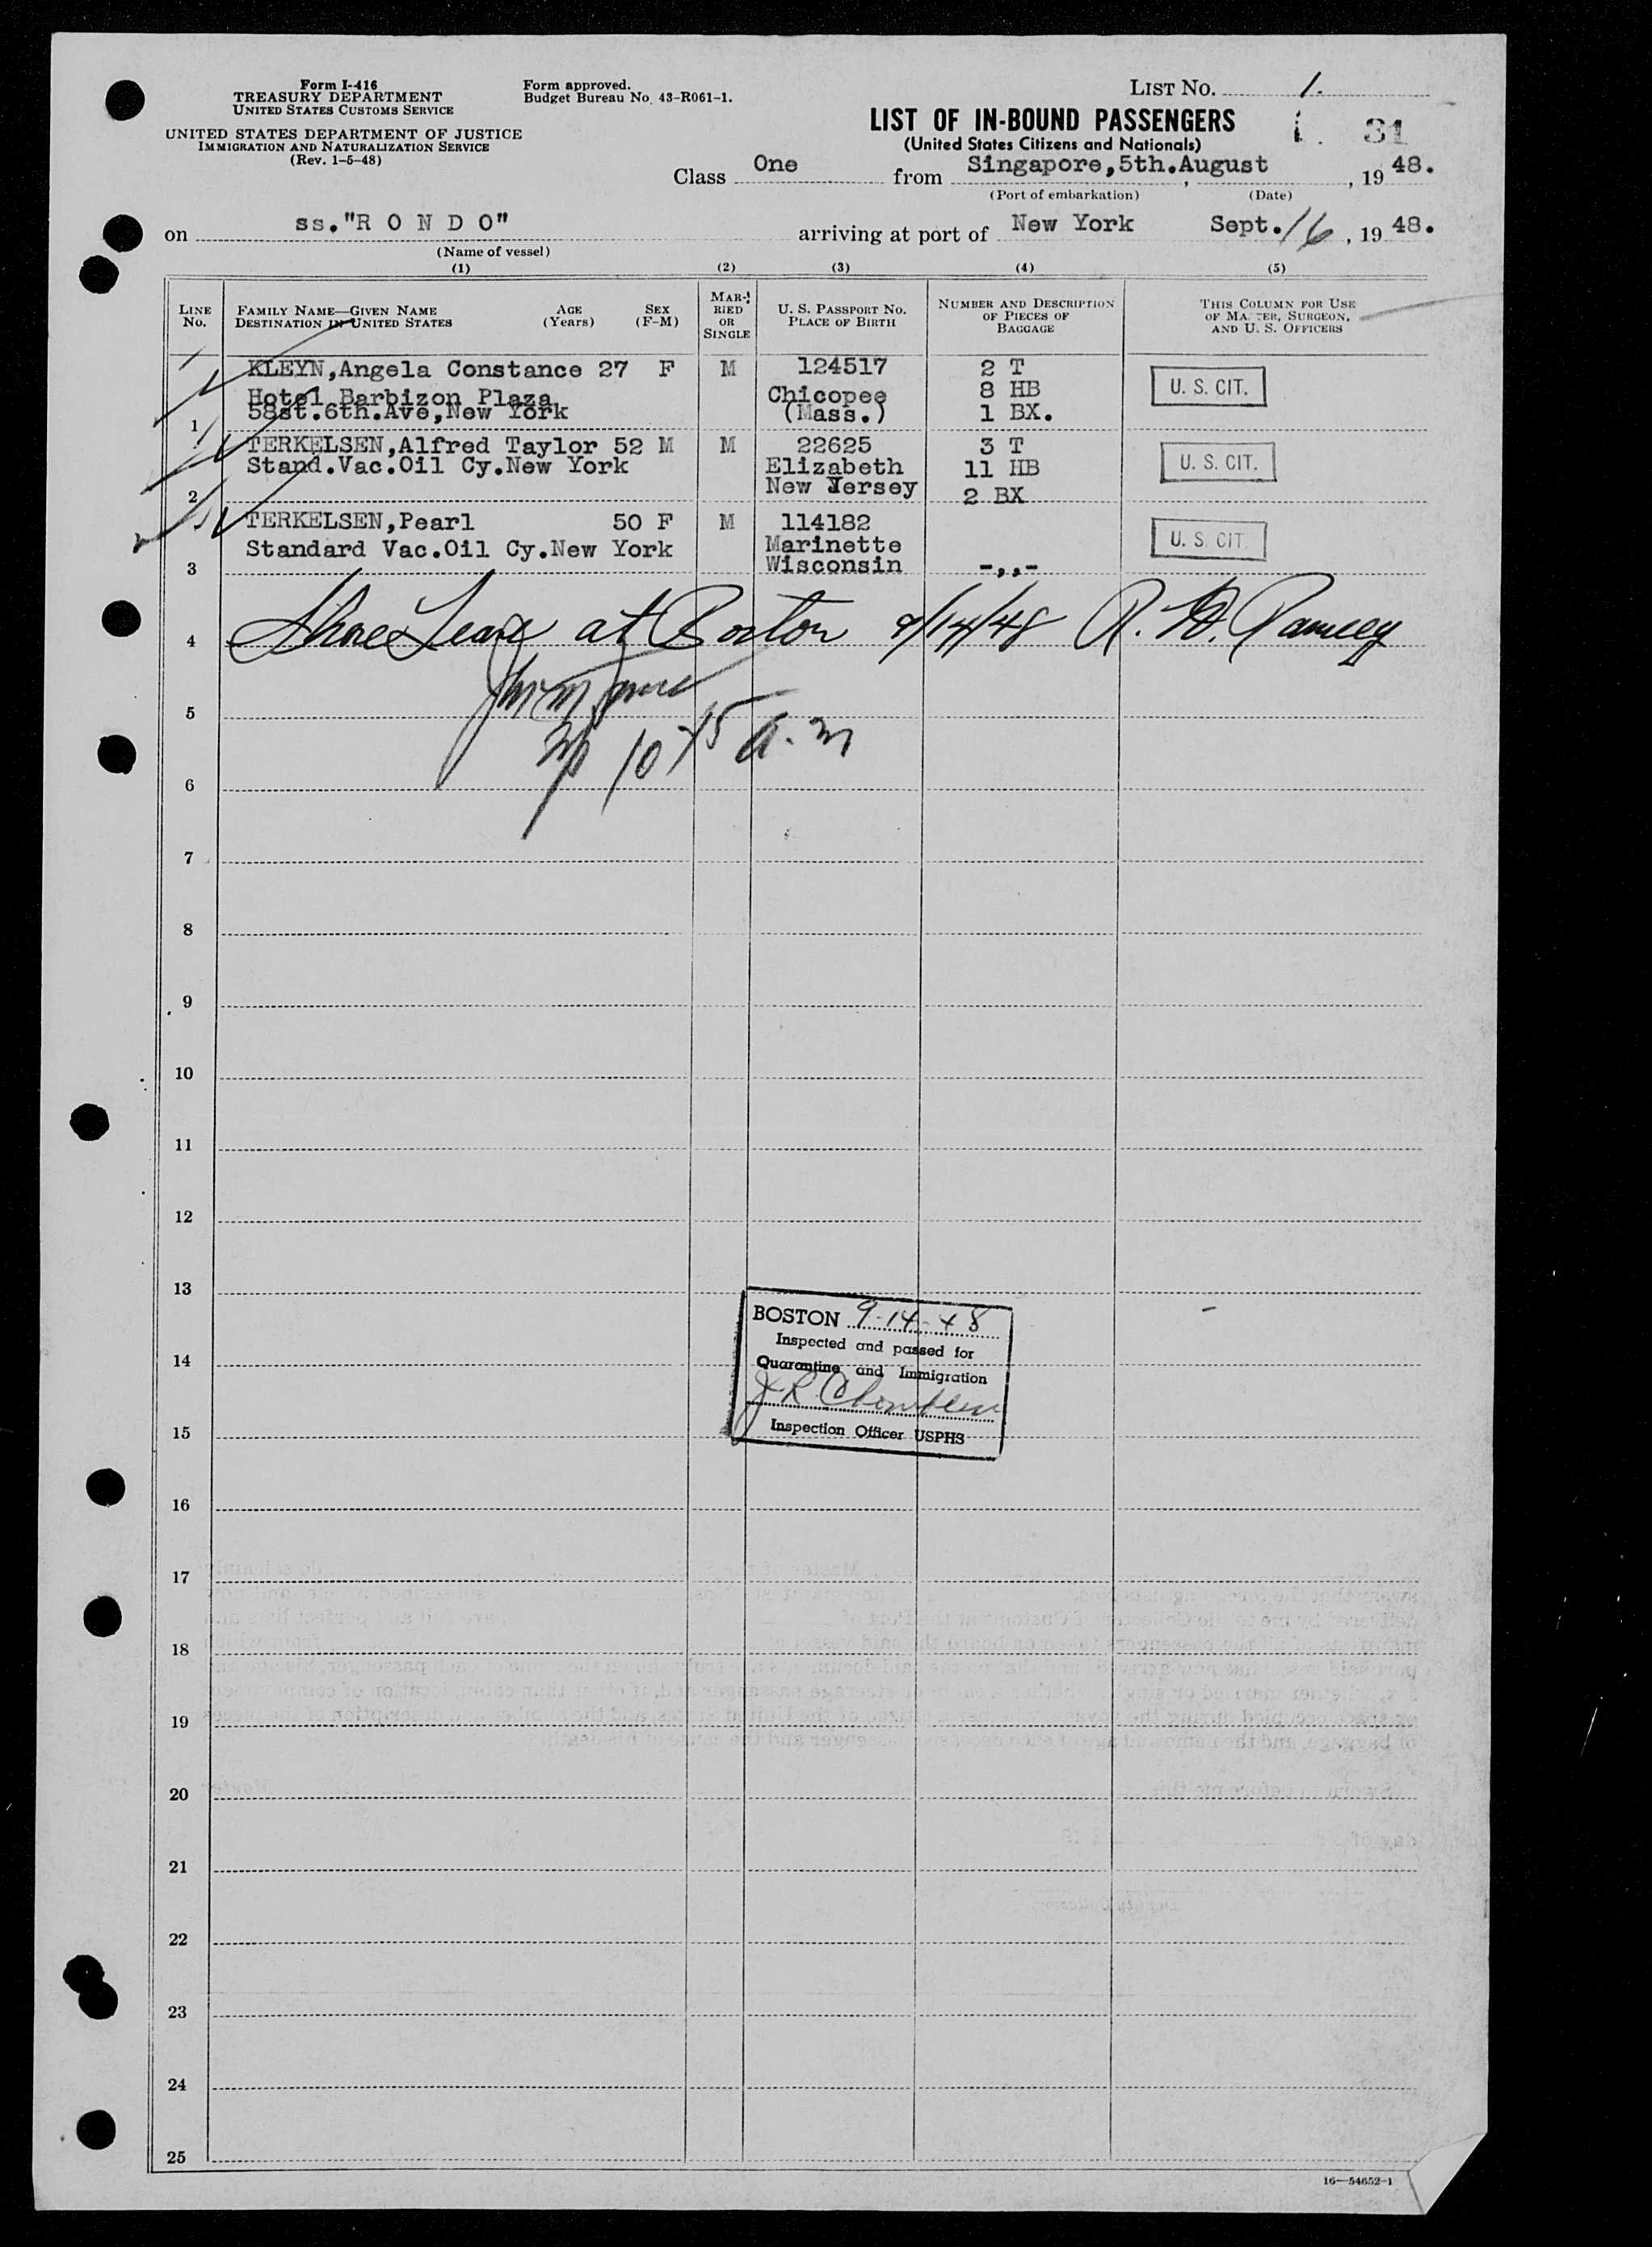 Form I-416
TREASURY DEPARTMENT
UNITED STATES CUSTOMS SERVICE
UNITED STATES DEPARTMENT OF JUSTICE
IMMIGRATION AND NATURALIZATION SERVICE
(Rev. 1-5-48)
Form approved.
Budget Bureau No. 43-R061-1.
LIST NO. 1.
LIST OF IN-BOUND PASSENGERS
(United States Citizens and Nationals)
1. 31
Class One from Singapore,5th.August, 19 48.
(Port of embarkation) (Date)
on ss."R O N D O" arriving at port of New York Sept. 16, 19 48.
(Name of vessel)
(1) (2) (3) (4) (5)
LINE No.
FAMILY NAME—GIVEN NAME
DESTINATION IN UNITED STATES
AGE (Years)
SEX (F-M)
MARRIED OR SINGLE
U. S. PASSPORT NO.
PLACE OF BIRTH
NUMBER AND DESCRIPTION
OF PIECES OF
BAGGAGE
THIS COLUMN FOR USE
OF MASTER, SURGEON,
AND U. S. OFFICERS
KLEYN,Angela Constance 27 F M 124517 2 T
Hotel Barbizon Plaza Chicopee 8 HB U. S. CIT.
1 58st.6th.Ave,New York (Mass.) 1 BX.
TERKELSEN,Alfred Taylor 52 M M 22625 3 T
Stand.Vac.Oil Cy.New York Elizabeth 11 HB U. S. CIT.
2 New Jersey 2 BX
TERKELSEN,Pearl 50 F M 114182
Standard Vac.Oil Cy.New York Marinette U. S. CIT.
3 Wisconsin -,,-
4 Shore Leave at Boston 9/14/48
5
10 45 A.M
6
7
8
9
10
11
12
13
BOSTON 9-14-48
Inspected and passed for
14
Quarantine and Immigration
J.R.
15
Inspection Officer USPHS
16
17
18
19
20
21
22
23
24
25
16—54652-1